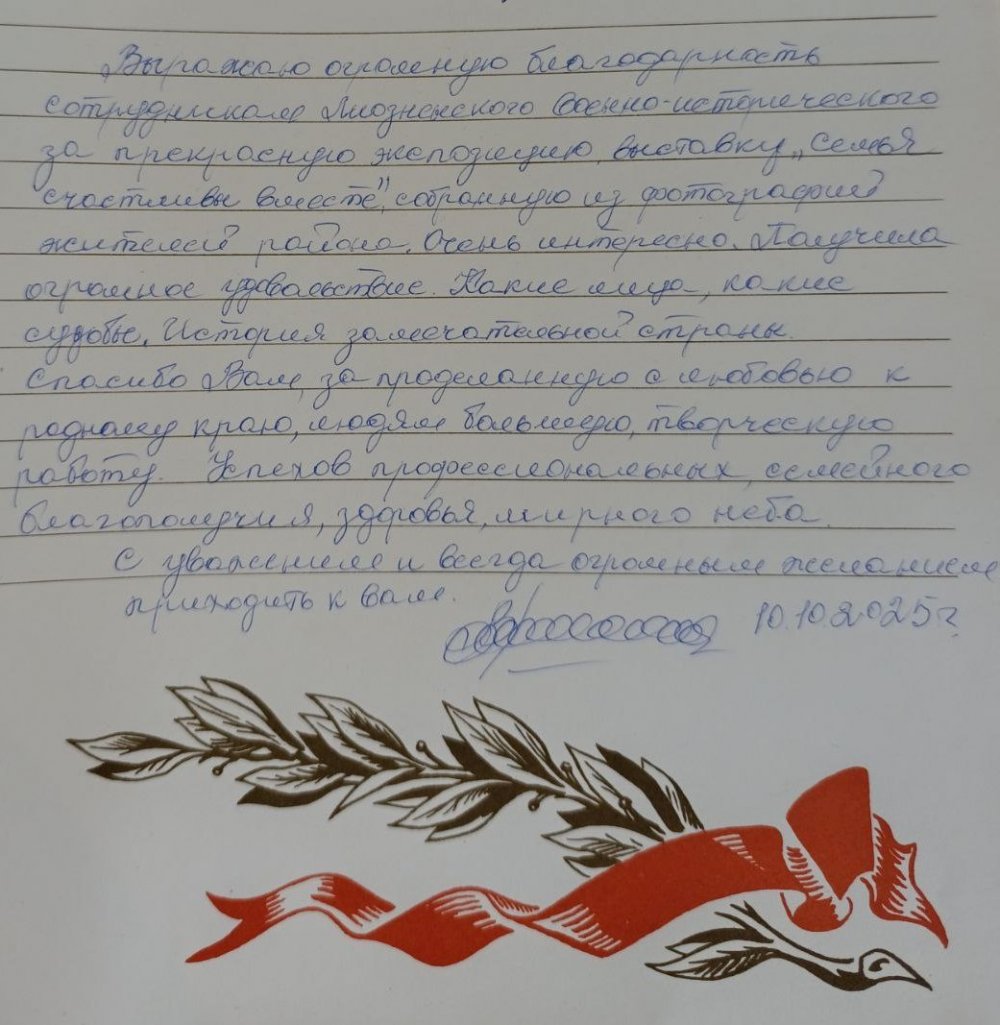 Выражаю огромную благодарность
сотрудникам Лиозненского военно-исторического
за прекрасную экспозицию, выставку „Семья
счастливы вместе", собранную из фотографий
жителей района. Очень интересно. Получила
огромное удовольствие. Какие лица, какие
судьбы. История замечательной страны.
Спасибо Вам, за проделанную с любовью к
родному краю, людям большую, творческую
работу. Успехов профессиональных, семейного
благополучия, здоровья, мирного неба.
С уважением и всегда огромным желанием
приходить к вам.
10.10.2025г.